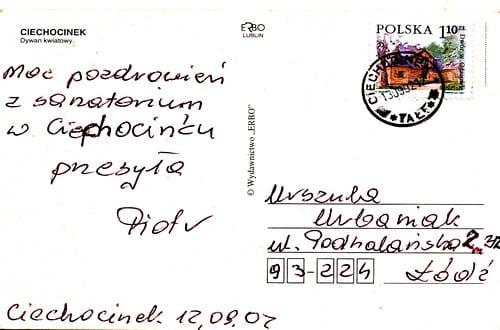 CIECHOCINEK
Dywan kwiatowy.
ERBO
LUBLIN
POLSKA 1,10 ZŁ
CIECHOCINEK
Moc pozdrowień
z sanatorium
w Ciechocinku
przesyła
Piotr
© Wydawnictwo „ERBO”
Urszula
Urbaniak
ul. Podhalańska
93-224
Łódź
Ciechocinek 12,09.02